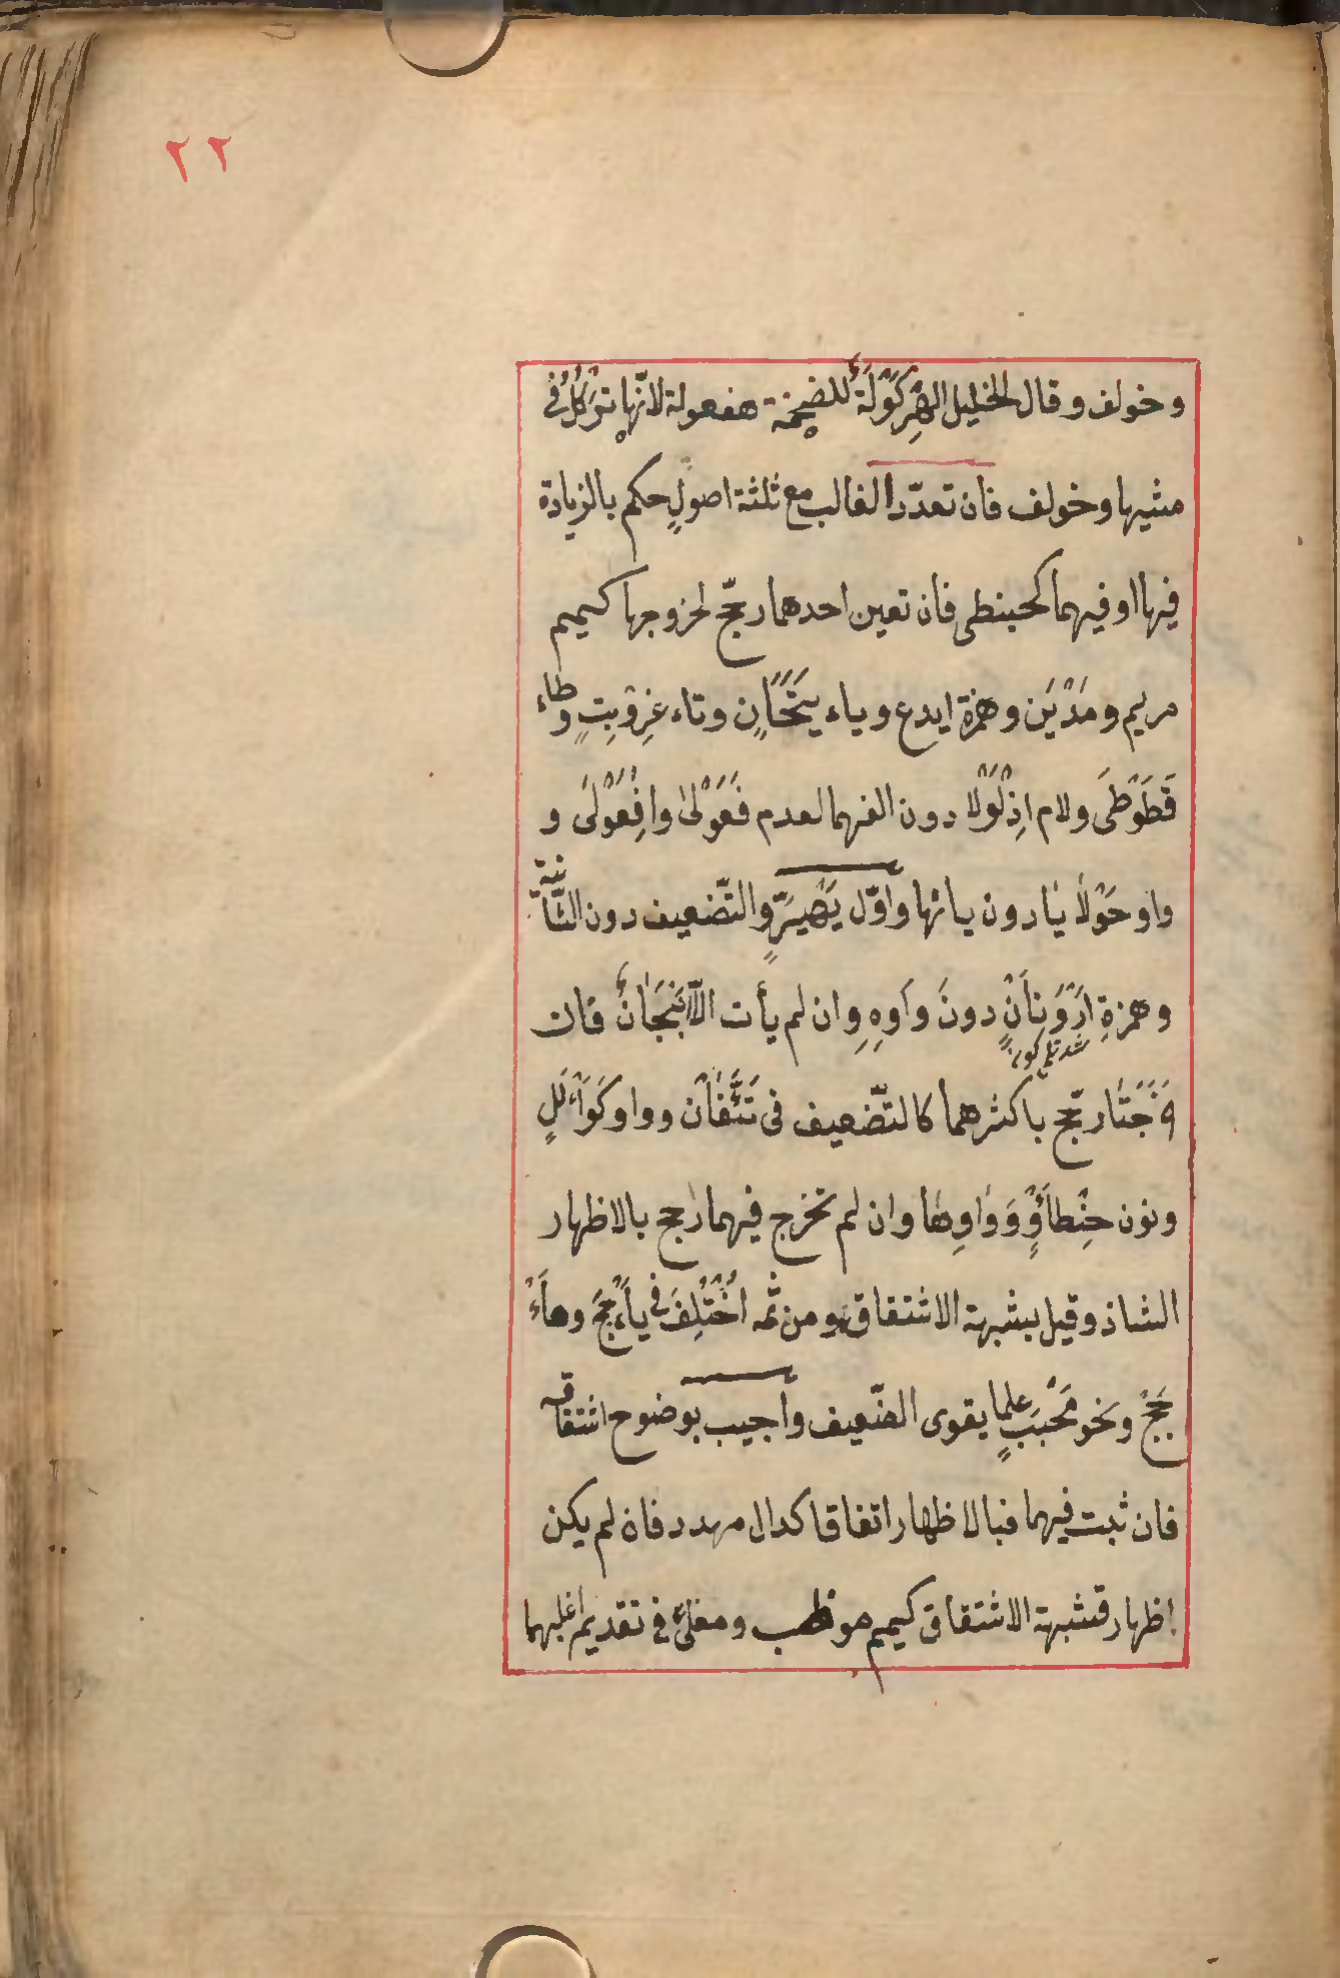 ٢٢
وخولف وقال الخليل الهِرْكَوْلَةُ للضخمة هفعولة لانّها تَرْكُلُ فى
مشيها وخولف فان تعدّد الغالب مع ثلثة اصولٍ حكم بالزيادة
فيها او فيهما كحبنطى فان تعين احدهما رجّح لخروجها كميم
مريم ومَدْيَن وهمزة ايدع وياء يتَحَّانٍ وتاء عِزوِيتٍ وطاء
قَطَوْطَى ولام اِذْلَوْلا دون الفهما لعدم فَعَوْلى وافِعَوْلَى و
واو حَوْلاَيَا دون يائها واوّل يَهْيَرٍّ والتّضعيف دون الثّانية
وهمزةِ اَرْوَنَانٍ دونَ وَاوِهِ وان لم يأت الّا اَنْبَجَانٌ فان
خَرَجَتَا رجّح باكثرهما كالتّضعيف فى تَئَّفَان وواو كَوَأْلَلٍ
ونون حِنْطَأْوٍ وَوَاوِهَا وان لم تخرج فيهما رجح بالاظهار
الشاذ وقيل بشبهة الاشتقاق ومن ثمه اخْتُلِفَ فى يَأْجَجَ وهاءْ
جَجْ ونحو مَحْبَبٍ علما يقوى الضّعيف واجيب بوضوح اشتقاقه
فان ثبت فيهما فبالاظهار اتفاقا كدال مهدد فان لم يكن
اظهار فشبهة الاشتقاق كميم موظب ومعلى فى تقديم اغلبهما